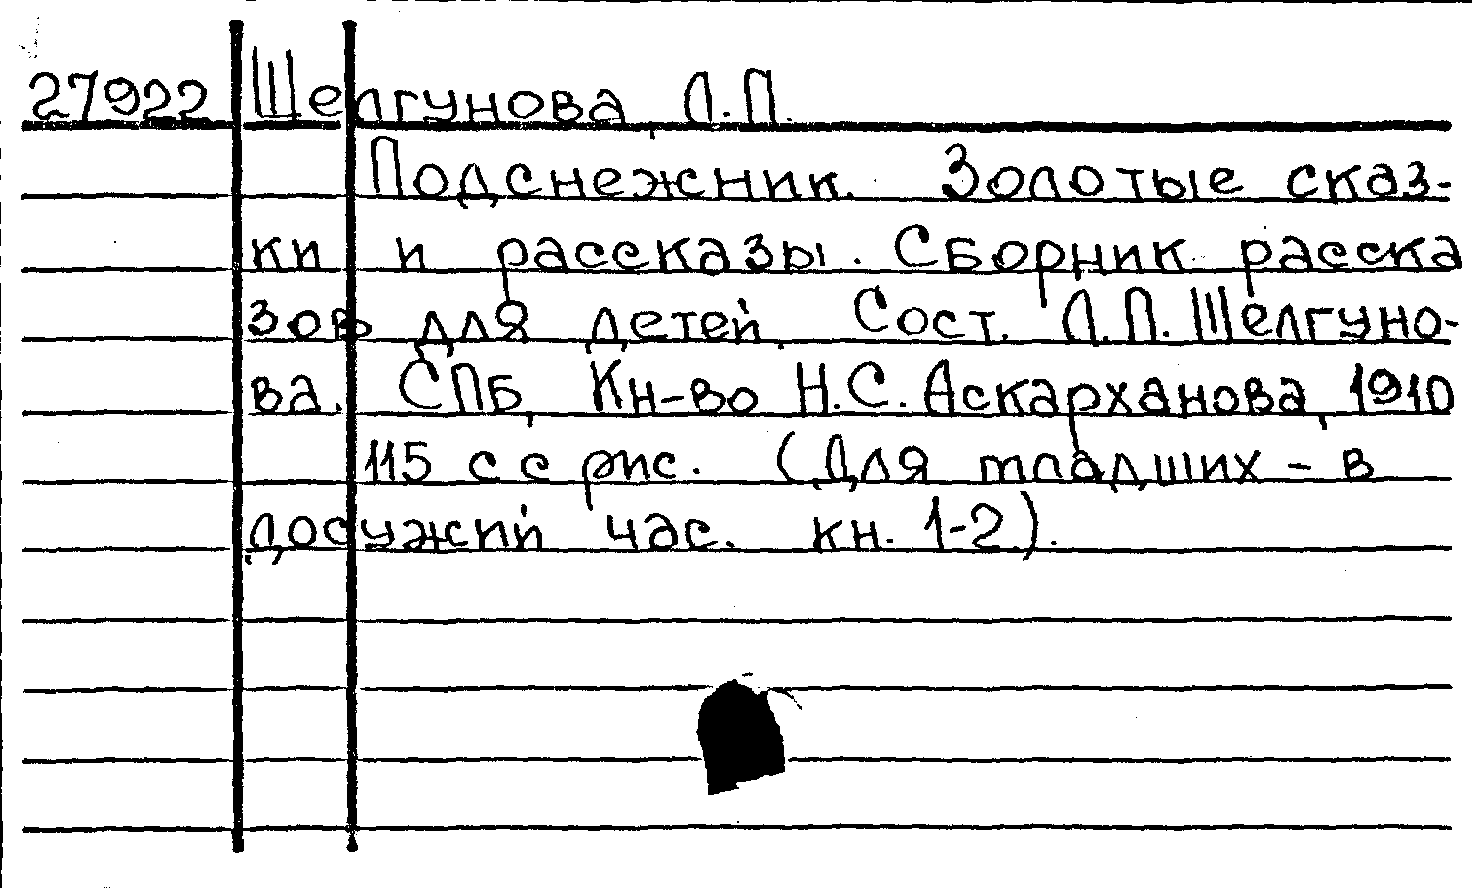 27922 Шелгунова, Л.П.
Подснежник. Золотые сказ-
ки и рассказы. Сборник расска
зов для детей. Сост. Л.П. Шелгуно-
ва. СПБ, Кн-во Н.С. Аскарханова, 1910
115 с с рис. (Для младших - в
досужий час. кн. 1-2).